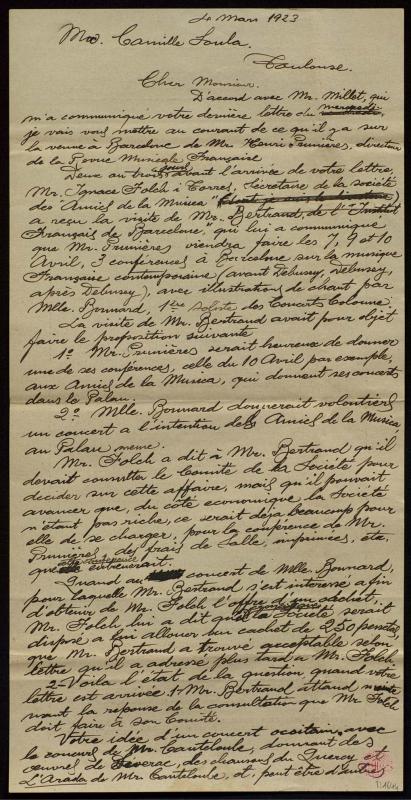 4 Mars 1923
Mr. Camille Soula.
Toulouse.
Cher Monsieur.
D'accord avec Mr. Millet, qui
m'a communiqué votre dernière lettre du mercredi
je vais vous mettre au courant de ce qu'il y a sur
la venue à Barcelone de Mr. Henri Prunières, directeur
de la Revue Musicale Française
Deux ou trois jours avant l'arrivée de votre lettre,
Mr. Ignace Folch i Torres, Sécrétaire de la société
des "Amics de la Musica"
a reçu la visite de Mr. Bertrand, de l'Institut
Français de Barcelone, qui lui a communiqué
que Mr. Prunières viendra faire les 7, 9 et 10
Avril, 3 conférences à Barcelone sur la musique
Française contemporaine (avant Debussy, Debussy,
après Debussy), avec illustrations de chant par
Mlle. Bonnard, 1ère soliste des Concerts Colonne.
La visite de Mr. Bertrand avait pour objet
faire le proposition suivante
1º Mr. Prunières serait heureux de donner
une de ses conférences, celle du 10 Avril par exemple,
aux Amics de la Musica, qui donnent ses concerts
dans la Palau.
2º Mlle. Bonnard donnerait volontiers
un concert a l'intention dels Amics de la Musica
au Palau même.
Mr. Folch a dit à Mr. Bertrand qu'il
devait consulter le Comité de la Société pour
decider sur cette affaire, mais qu'il pouvait
avancer que, du côté economique la Société
n'étant pas riche, ce serait déja beaucoup pour
elle de se charger, pour la conférence de Mr.
Prunières, des frais de Salle, imprimées, etc.
que en viendrait.
Quand au concert de Mlle. Bonnard,
pour laquelle Mr. Bertrand s'est interessé a fin
d'obtenir de Mr. Folch l'offre d'un cachet,
Mr. Folch lui a dit que la Société serait
disposé a lui allouer un cachet de 250 pesetas,
que Mr. Bertrand a trouvé acceptable selon
lettre qu'il a adressé plus tard a Mr. Folch.
2- Voila l'état de la question, quand votre
lettre est arrivée 1- Mr. Bertrand attend
nant la reponse de la consultation que Mr. Folch
doit faire à son Comité.
Votre idée d'un concert occitain, avec
le concours de Mr. Canteloube, donnant des
œuvres de Severac, des chansons du Quercy et
L'Arada de Mr. Canteloube, et, peut être d'autres